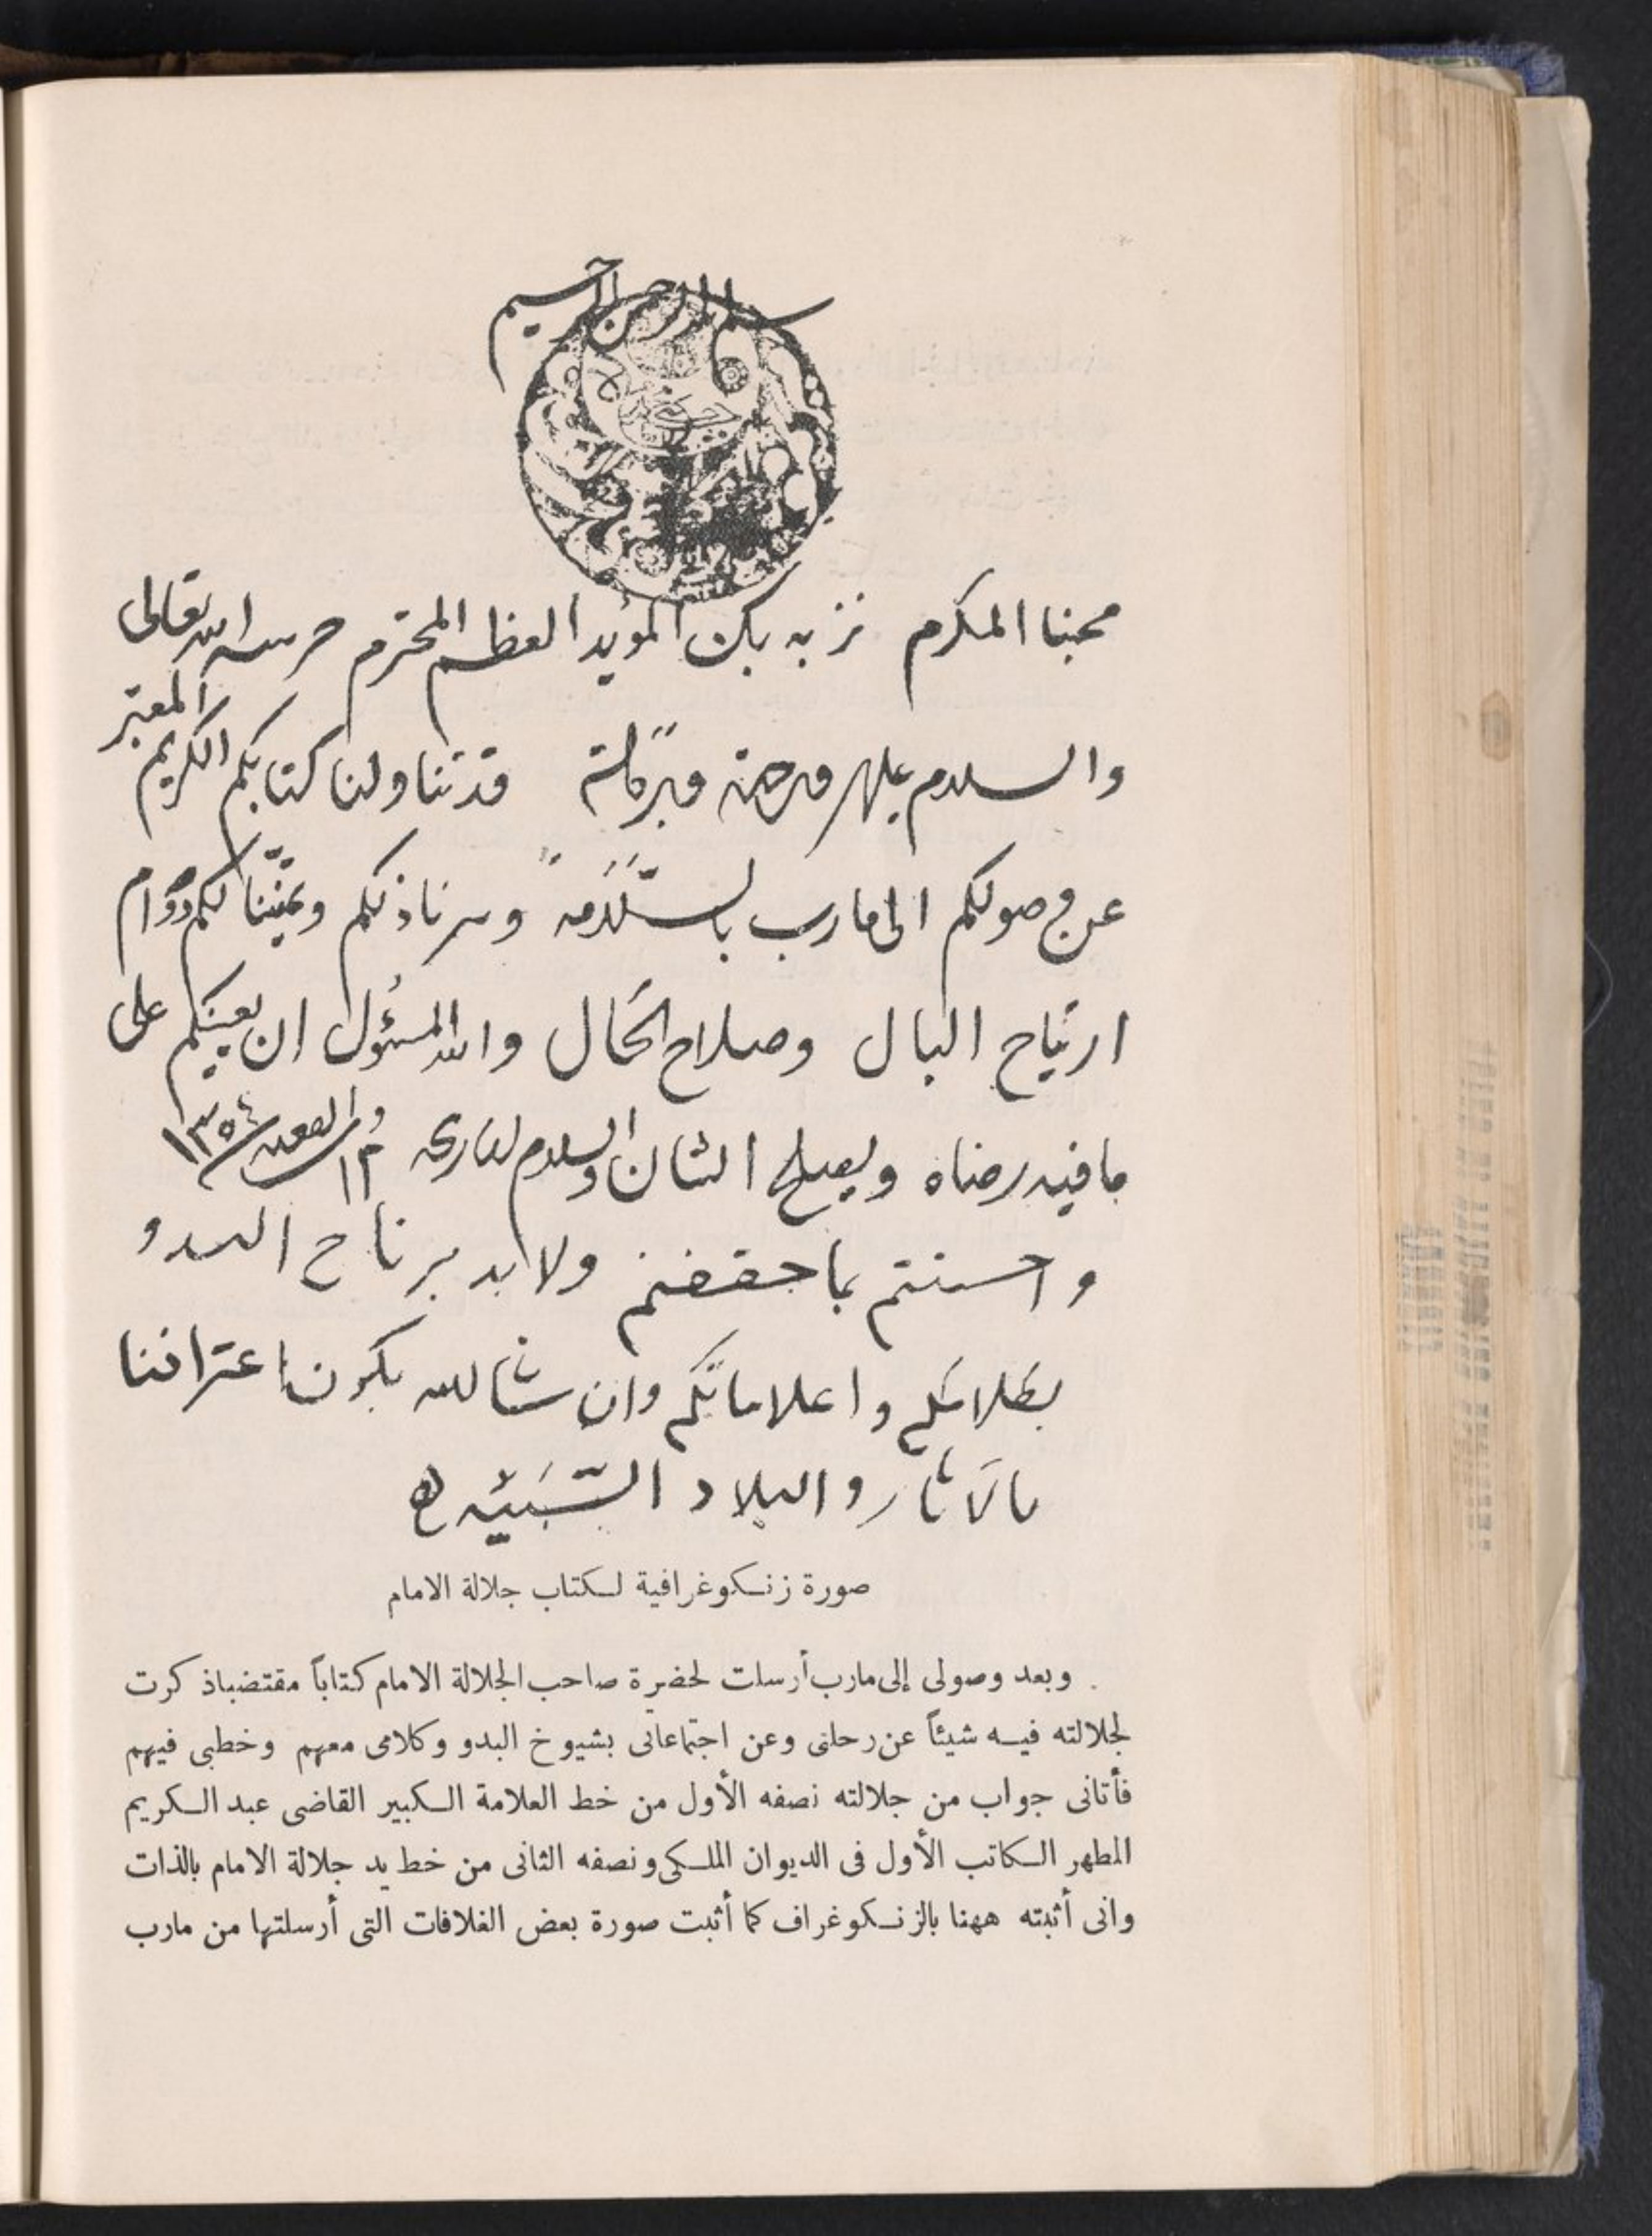 بسم الله الرحمن الرحيم
محبنا المكرم نزيه بك المؤيد العظم المحترم حرسه الله تعالى
والسلام عليكم ورحمة وبركاته قد تناولنا كتابكم الكريم المعتبر
عن وصولكم الى مارب بالسَّلَامة وسرنا ذلكم وتمنّينا لكم دوام
ارتياح البال وصلاح الحَال والله المسئول ان يعينكم على
ما فيه رضاه ويصلح الشان والسلام بتاريخه ١٢ القعده ١٣٥٤
و احسنتم بما حققتم ولا بد يرتاح البدو
بكلامكم و اعلاماتكم وان شاالله يكون اعترافنا
بالآثار والبلاد السَّبَئيه
صورة زنكوغرافية لكتاب جلالة الامام
وبعد وصولى إلى مارب أرسلت لحضرة صاحب الجلالة الامام كتاباً مقتضباذ كرت
لجلالته فيه شيئاً عن رحلتى وعن اجتماعاتى بشيوخ البدو وكلامى معهم وخطبى فيهم
فأتانى جواب من جلالته نصفه الأول من خط العلامة الكبير القاضى عبد الكريم
المطهر الكاتب الأول فى الديوان الملكى ونصفه الثانى من خط يد جلالة الامام بالذات
وانى أثبته ههنا بالزنكوغراف كما أثبت صورة بعض الغلافات التى أرسلتها من مارب